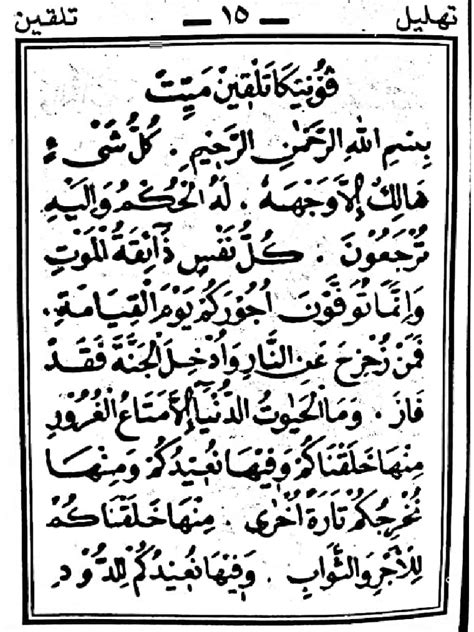 تهليل — ١٥ — تلقين
ڤوݢتيكا تلقين ميّت
بِسْمِ اللهِ الرَّحْمٰنِ الرَّحِيْمِ . كُلُّ شَىْءٍ
هَالِكٌ اِلاَّ وَجْهَهُ . لَهُ الْحُكْمُ وَاِلَيْهِ
تُرْجَعُوْنَ . كُلُّ نَفْسٍ ذَآئِقَةُ الْمَوْتِ
وَاِنَّمَا تُوَفَّوْنَ اُجُوْرَكُمْ يَوْمَ الْقِيَامَةِ .
فَمَنْ زُحْزِحَ عَنِ النَّارِ وَاُدْخِلَ الْجَنَّةَ فَقَدْ
فَازَ . وَمَا الْحَيٰوتُ الدُّنْيَآ اِلاَّ مَتَاعُ الْغُرُوْرِ
مِنْهَا خَلَقْنَاكُمْ وَفِيْهَا نُعِيْدُكُمْ وَمِنْهَا
نُخْرِجُكُمْ تَارَةً اُخْرٰى . مِنْهَا خَلَقْنَاكُمْ
لِلْاَجْرِ وَالثَّوَابِ . وَفِيْهَا نُعِيْدُكُمْ لِلدُّوْدِ